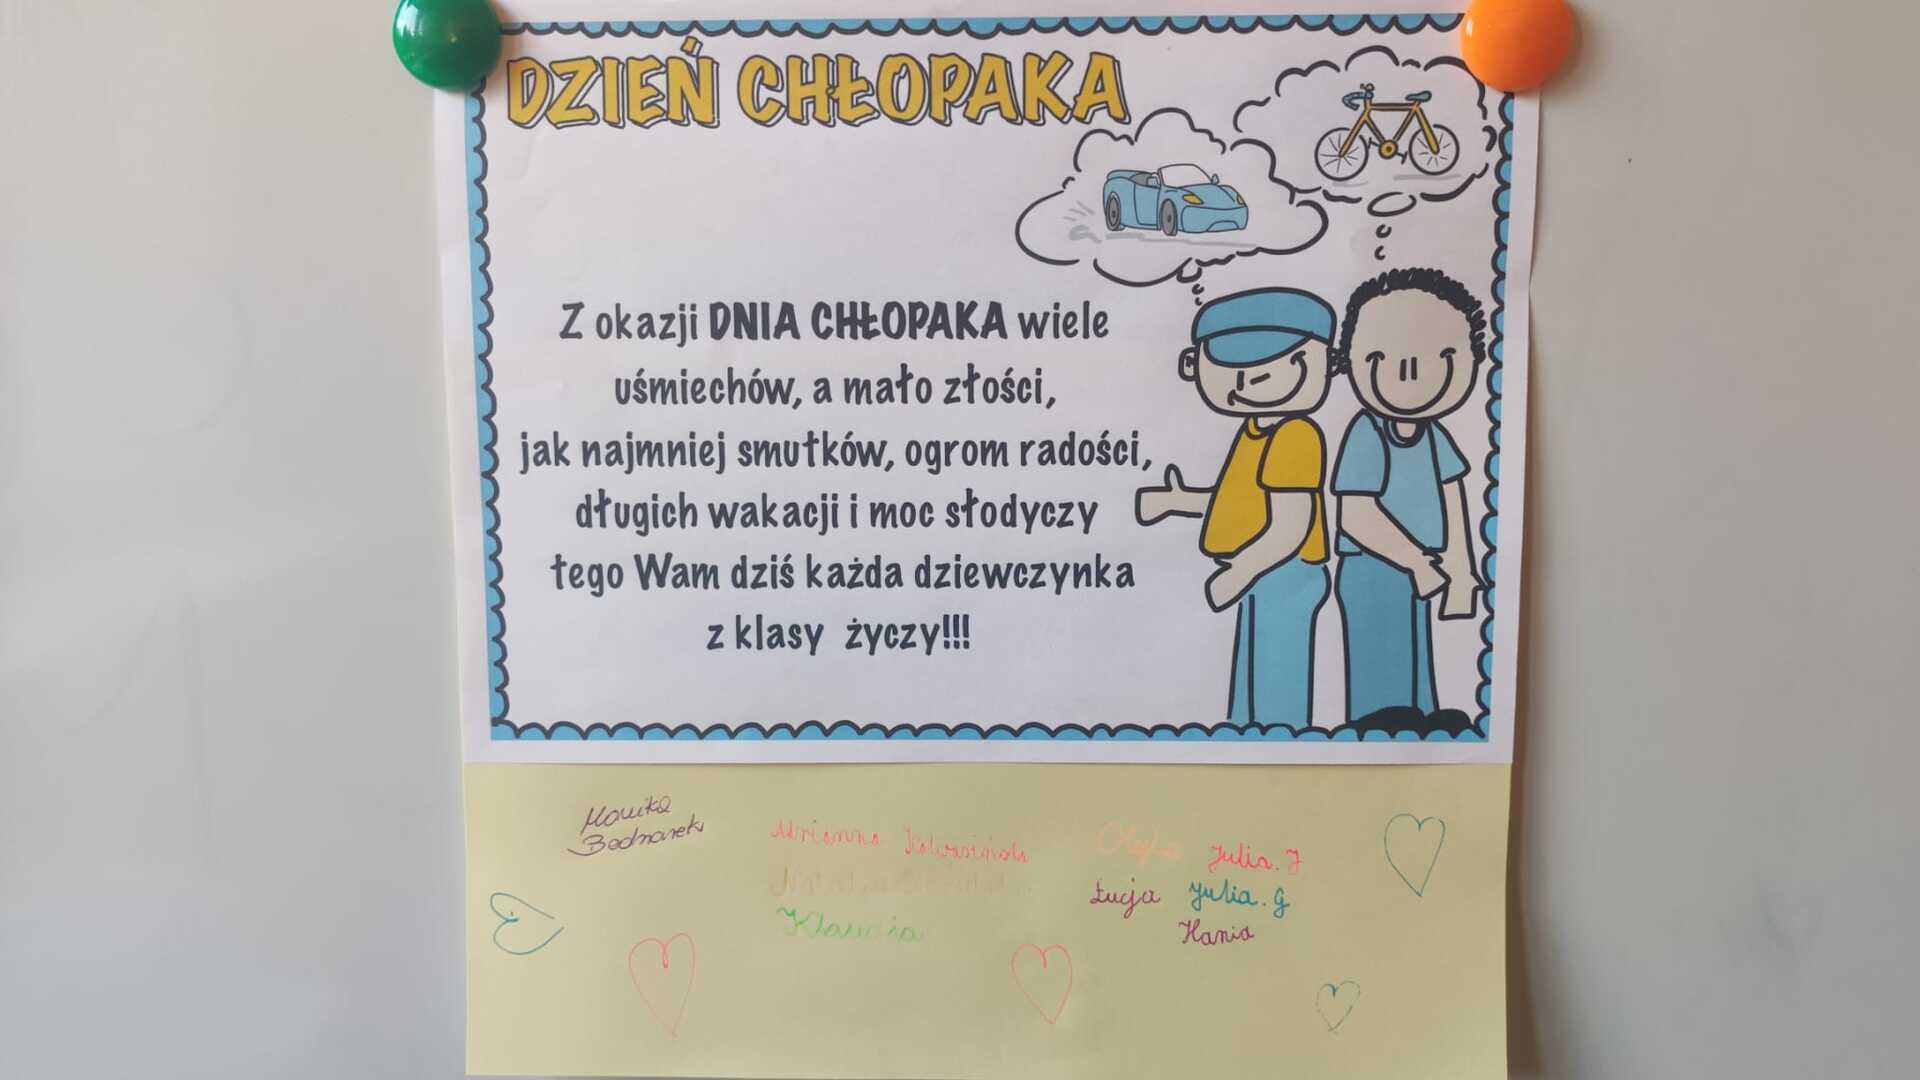 DZIEŃ CHŁOPAKA
Z okazji DNIA CHŁOPAKA wiele
uśmiechów, a mało złości,
jak najmniej smutków, ogrom radości,
długich wakacji i moc słodyczy
tego Wam dziś każda dziewczynka
z klasy życzy!!!
Monika
Bednarek
Adrianna
Klaudia
Julia. J
Łucja Julia. G
Hania